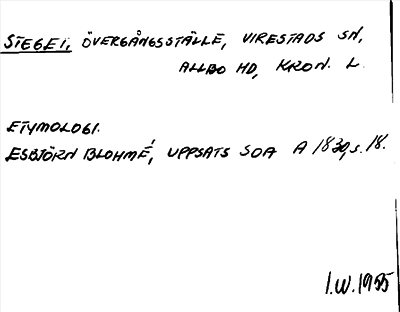 STEGET, ÖVERGÅNGSSTÄLLE, VIRESTADS SN,
ALLBO HD, KRON. L.
ETYMOLOGI.
ESBJÖRN BLOHMÉ, UPPSATS SOA A 1830, s. 18.
I.W. 1955